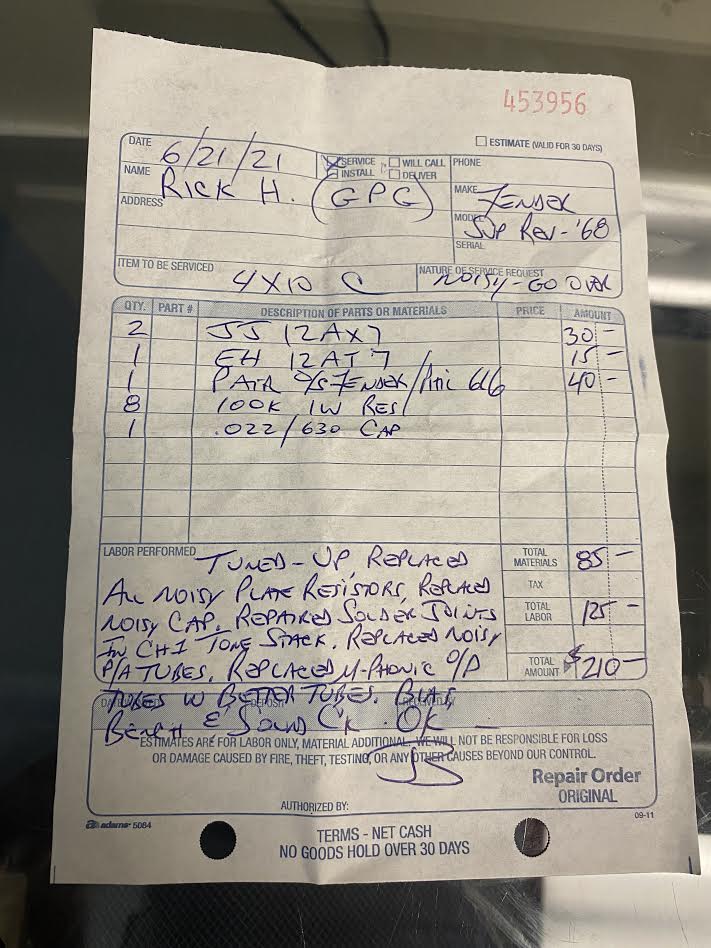 453956
ESTIMATE (VALID FOR 30 DAYS)
DATE 6/21/21
SERVICE WILL CALL PHONE
INSTALL DELIVER
NAME RICK H. (GPG)
MAKE FENDER
ADDRESS
MODEL SUP REV-'68
SERIAL
ITEM TO BE SERVICED 4X10 C
NATURE OF SERVICE REQUEST NOISY-GO OVER
QTY. PART # DESCRIPTION OF PARTS OR MATERIALS PRICE AMOUNT
2 JJ 12AX7 30-
1 EH 12AT7 15-
1 PAIR O/S FENDER/ 6L6 40-
8 100K 1W RES
1 .022/630 CAP
LABOR PERFORMED TUNED-UP, REPLACED
ALL NOISY PLATE RESISTORS, REPLACED
NOISY CAP. REPAIRED SOLDER JOINTS
IN CH1 TONE STACK. REPLACED NOISY
P/A TUBES. REPLACED M-PHONIC O/P
TUBES W BETTER TUBES. BIAS,
BENCH & SOUND CK. OK
TOTAL MATERIALS 85-
TAX
TOTAL LABOR 125-
TOTAL AMOUNT $210-
ESTIMATES ARE FOR LABOR ONLY, MATERIAL ADDITIONAL. WE WILL NOT BE RESPONSIBLE FOR LOSS
OR DAMAGE CAUSED BY FIRE, THEFT, TESTING, OR ANY OTHER CAUSES BEYOND OUR CONTROL.
Repair Order
ORIGINAL
AUTHORIZED BY:
adams 5084
09-11
TERMS - NET CASH
NO GOODS HOLD OVER 30 DAYS